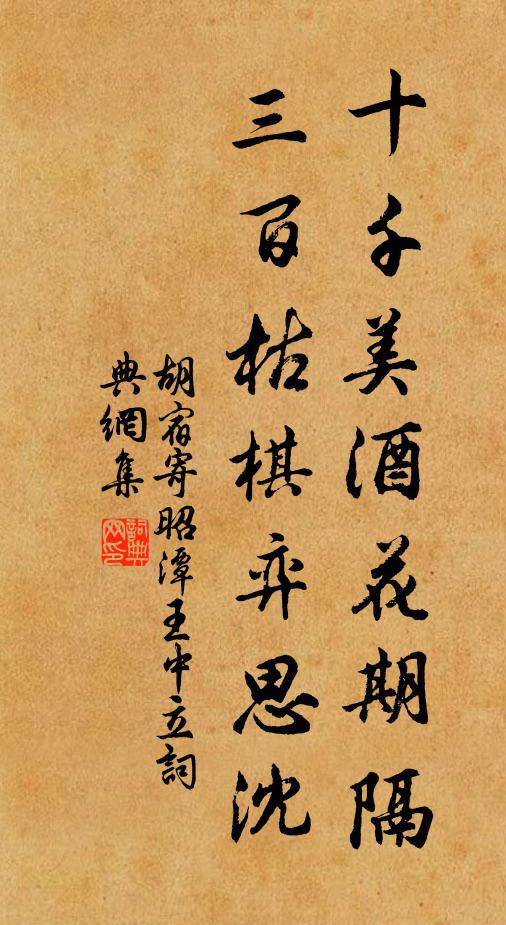 十千美酒花期隔
三百枯棋弈思沈
胡宿寄昭潭王中立詞
典網集
詞典
网印